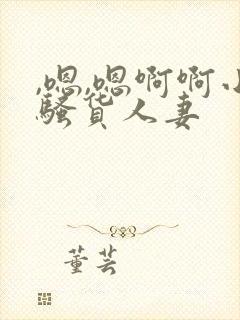 ,嗯,嗯啊啊小
骚货人妻
董芸